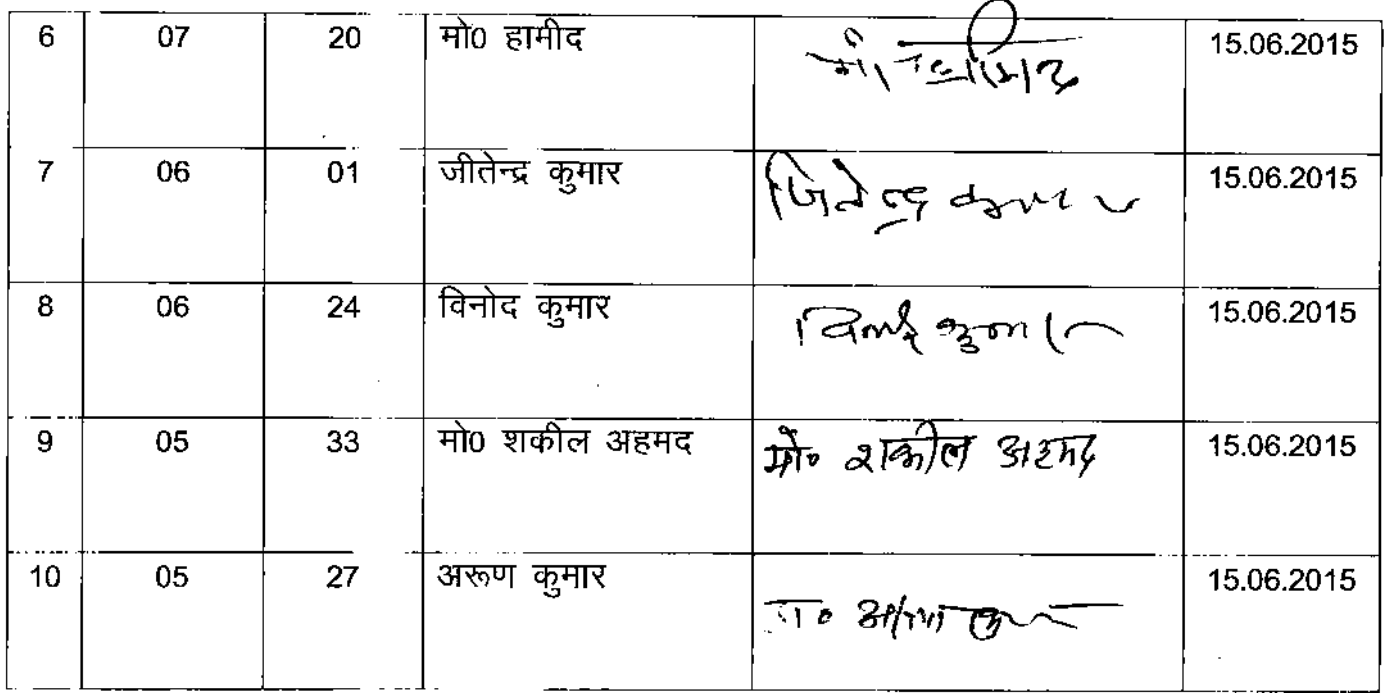 6 07 20 मो0 हामीद 15.06.2015
7 06 01 जीतेन्द्र कुमार जितेन्द्र कुमार 15.06.2015
8 06 24 विनोद कुमार कुमार 15.06.2015
9 05 33 मो0 शकील अहमद मो० शकील अहमद 15.06.2015
10 05 27 अरूण कुमार 15.06.2015